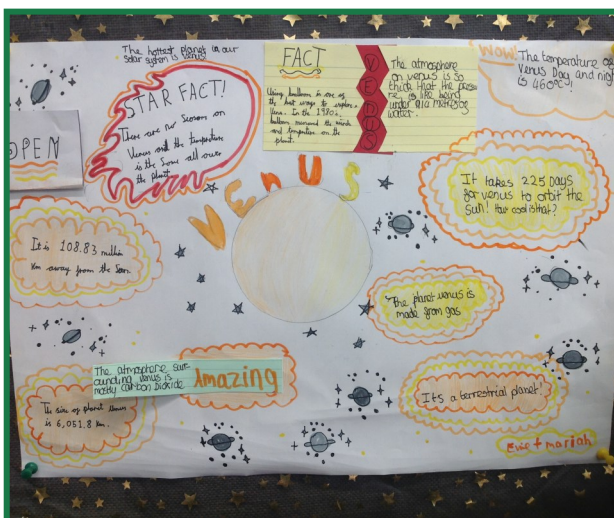 The hottest planet in our
solar system is venus
OPEN
STAR FACT!
There are no Seasons on
Venus and the temperature
is the Same all over
the planet.
FACT
Using balloons is one of
the best ways to explore
Venus. In the 1980s,
balloons measured the winds
and temperature on the
planet.
VEDUS
The atmosphere
on venus is so
thick that the pressu
re, is like being
under 912 meters of
water.
WOW!
The temperature of
Venus Day and nig
is 460°C!
VENUS
It takes 225 Days
for venus to orbit the
sun! How cool is that?
It is 108.83 million
km away from the Sun.
The planet venus is
made from gas
The atmosphere surr
ounding venus is
mostly carbon dioxide
Amazing
The size of planet Venus
is 6,051.8 km.
It's a terrestrial planet!
+ mariah